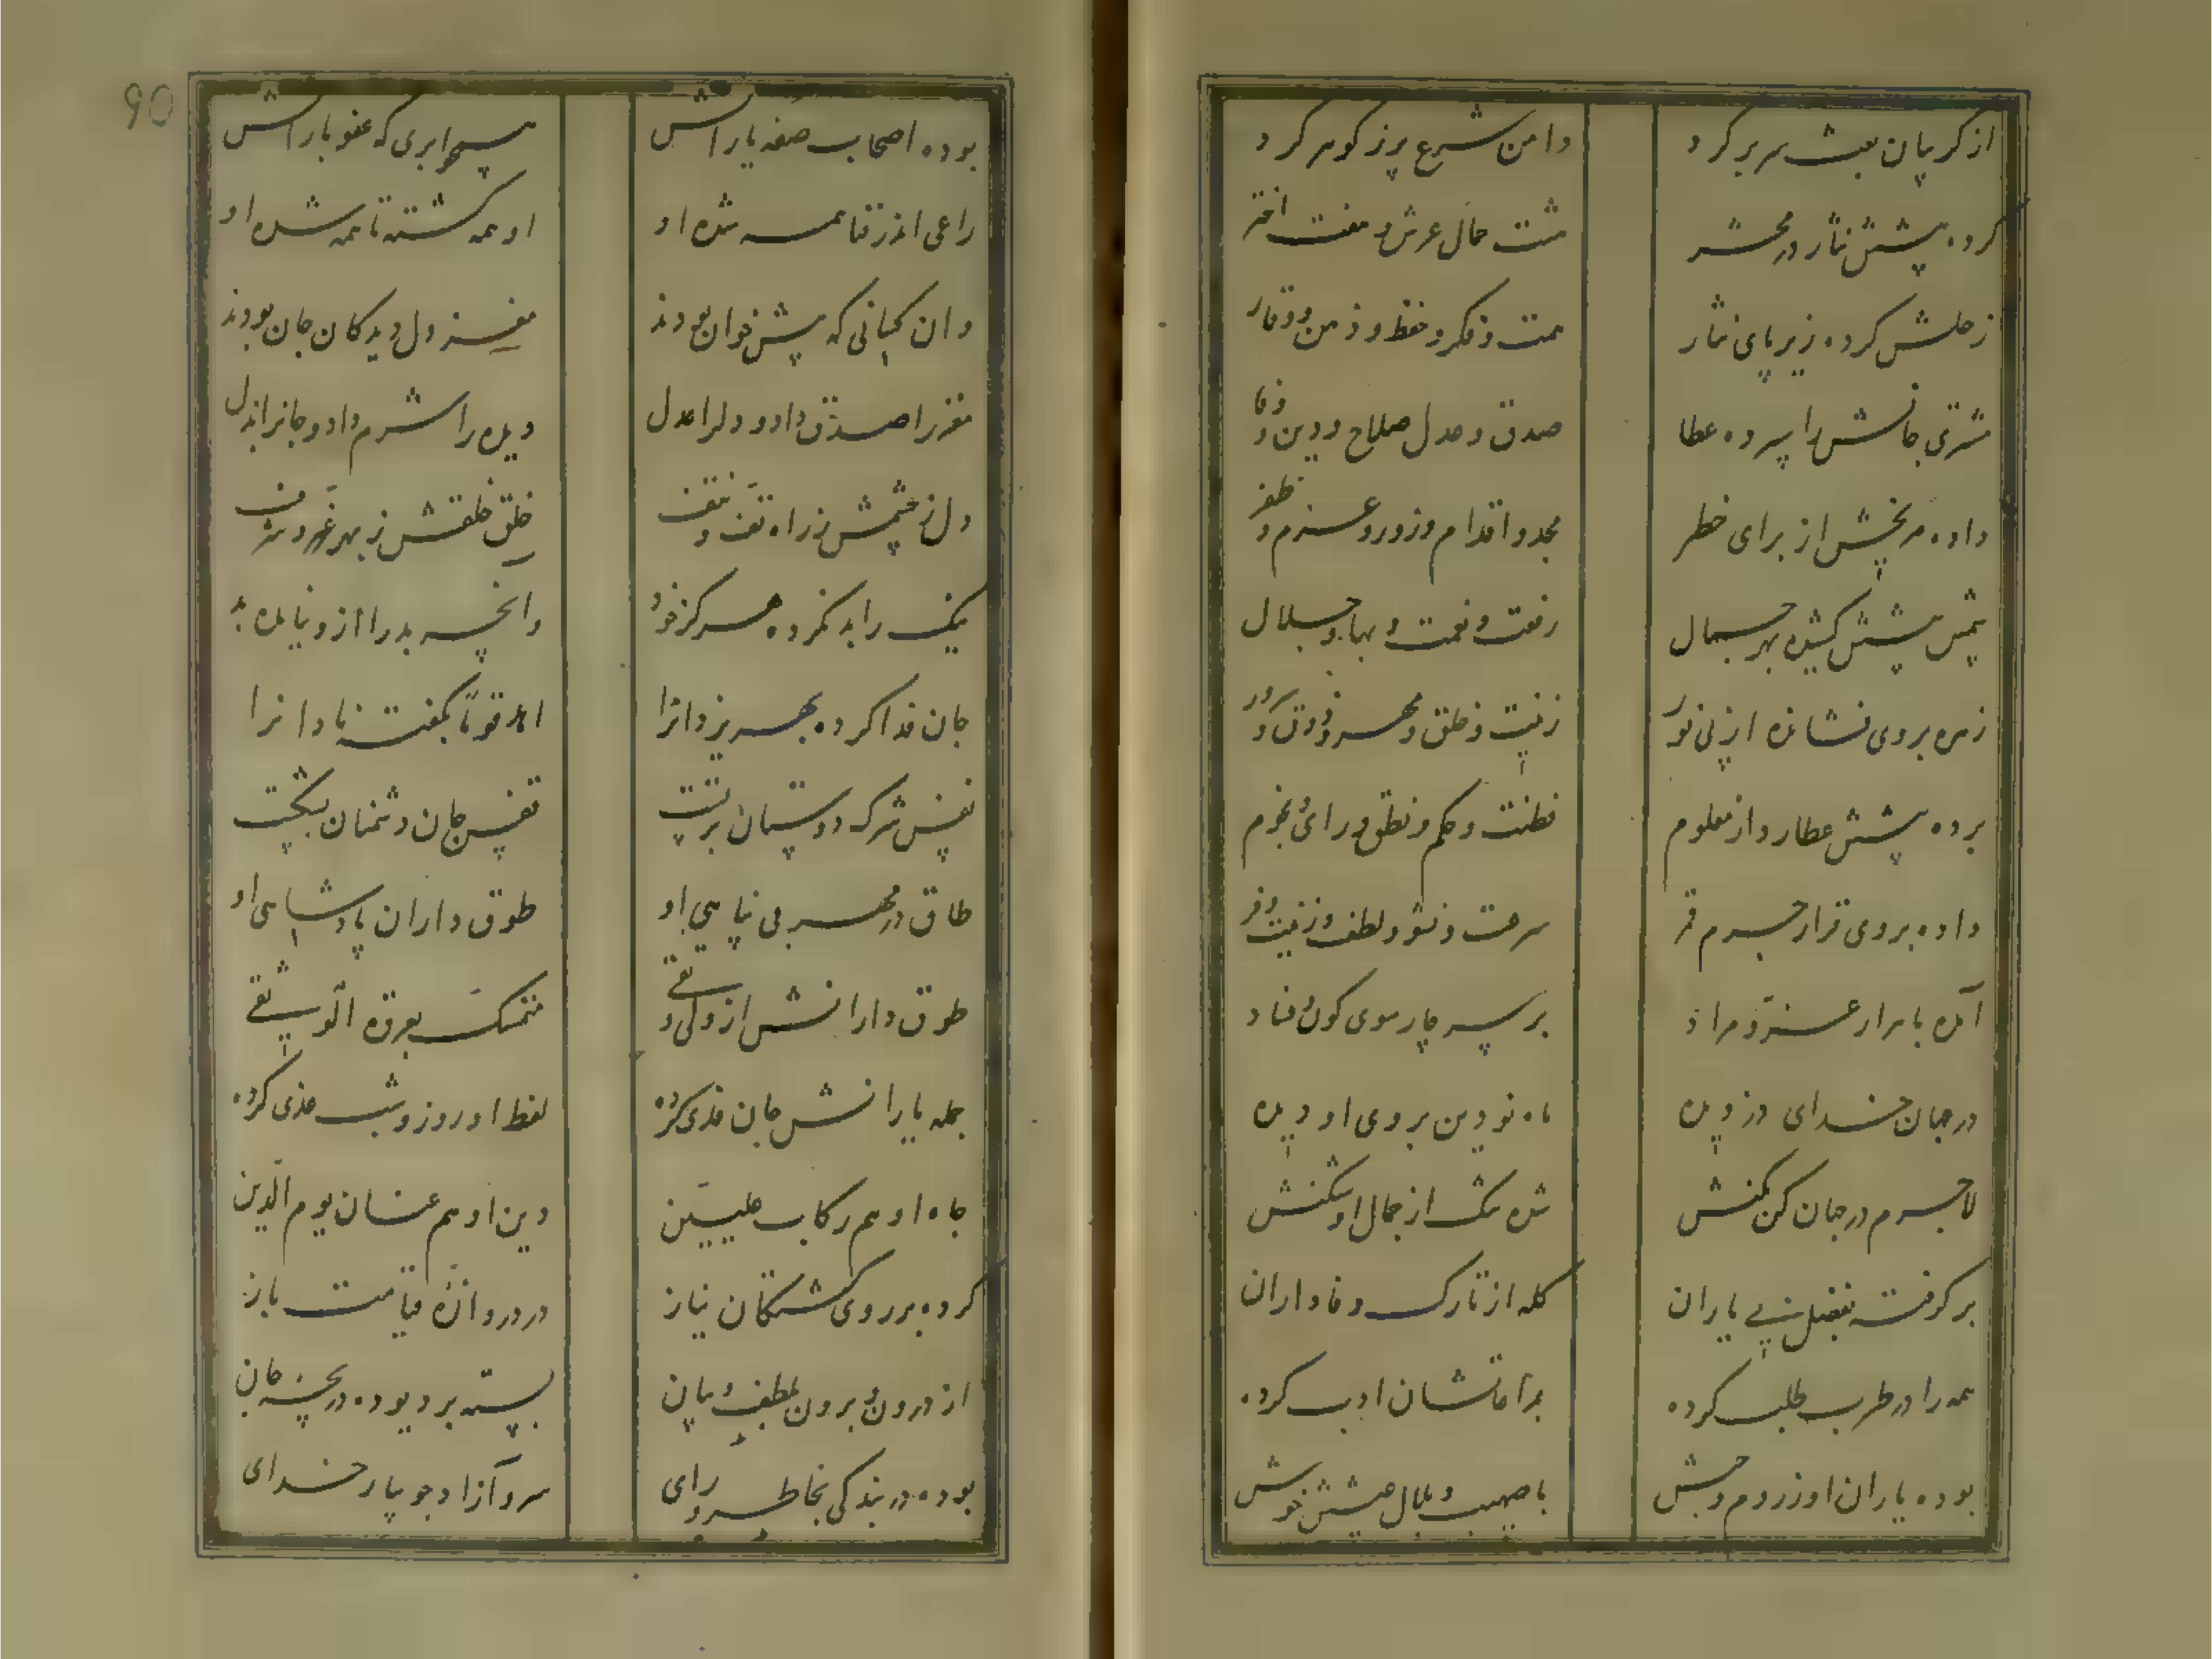 از کریبان بعث سر بر کرد	دامن شرع پر ز کوهر کرد
کرده پیشش نثار در محشر	هشت حمال عرش و هفت اختر
زحلش کرده زیر پای نثار	همت و فکر و حفظ و ذهن و وقار
مشتری جانش را سپرده عطا	صدق و عدل صلاح و دین و وفا
داده مریخش از برای خطر	مجد و اقدام و زور و عزم و ظفر
شمس پیشش کشیده بهر جمال	رفعت و نعمت و بها و جلال
زهره بروی فشانده از پی نور	زینت و خلق و مهر و ذوق و سرور
برده پیشش عطارد از معلوم	فطنت و حکم و نطق و رای نجوم
داده بروی قرار جرم قمر	سرعت و نشو و لطف و زینت و فر
آمده با مراد عز و مراد	بر سر چار سوی کون و فساد
در جهان خدای دز دیده	ماه نو دین بروی او دیده
لاجرم در جهان کن مکنش	شده یک از جمال او سکنش
بر کرفته بفضل پی یاران	کله از تارک وفاداران
همه را در طرب طلب کرده	بمراعاتشان ادب کرده
بوده یاران او ز روم و حبش	با صهیب و بلال عیشش خوش
بوده اصحاب صفه یارانش	همچو ابری که عفو بارانش
راعی اندر فنا همه شده او	او همه کشته تا همه شده او
وان کسانی که پیش خوان بودند	مغز دل دیدکان جان بودند
مغز را صدق داد و دلرا عدل	دیده را شرم داد و جانرا بذل
دل ز خشمش ز راه تف و نتف	خلق خلقش ز بهر عز و شرف
نیک را بد نکرده هرکز خود	وانچه بد را از و نیامده بد
جان فدا کرده بهر یزدانرا	اهد قومی بکفته نادانرا
نفس شرک دوستان برتست	قفس جان دشمنان بشکست
طاق در مهر بی نیاهی او	طوق داران پادشاهی او
طوق دارانش از ولی و تقی	متمسک بعروة الوثقی
جمله یارانش جان فدی کرده	لفظ او روز و شب غذی کرده
جاه او هم رکاب علیین	دین او هم عنان یوم الدین
کرده بر روی کشتکان نیاز	در دروازه قیامت باز
از درون و برون لطف و بیان	بسته بر دیو ده دریچه جان
بوده در بندکی بخاطر و رای	سرو آزاد جویبار خدای
90